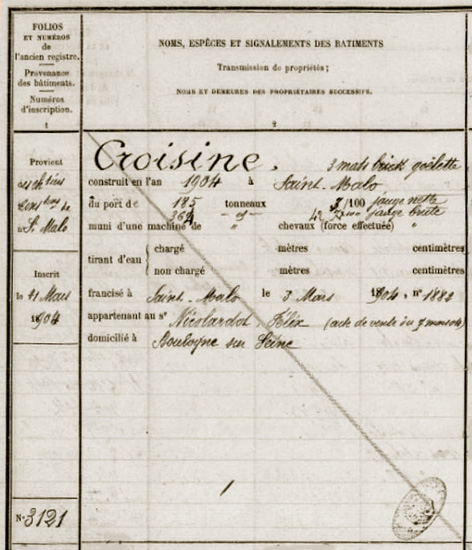 FOLIOS
ET NUMÉROS
de
l'ancien registre.
Provenance
des bâtiments.
Numéros
d'inscription.
1
NOMS, ESPÈCES ET SIGNALEMENTS DES BATIMENTS
Transmission de propriétés;
NOMS ET DEMEURES DES PROPRIÉTAIRES SUCCESSIFS.
2
Provient
de
St Malo
Inscrit
le 21 Mars
1904
N° 3121
Croisine, 3 mats brick goëlette
construit en l'an 1904 à Saint-Malo
du port de 185 tonneaux /100 jauge nette
362 42 jauge brute
muni d'une machine de " chevaux (force effectuée) "
tirant d'eau
chargé mètres centimètres
non chargé mètres centimètres
francisé à Saint-Malo le 3 Mars 1904, n° 1882
appartenant au sr Nicolardot, Félix (acte de vente du 7 mars 04)
domicilié à Boulogne sur Seine